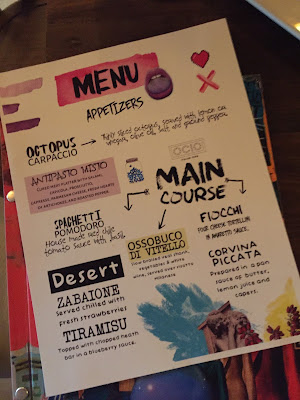 MENU
APPETIZERS
OCTOPUS
CARPACCIO
Thinly sliced octopus, served with lemon
vinegar, olive oil, salt and ground pepper.
ANTIPASTO MISTO
CURED MEAT PLATTER WITH SALAMI,
CAPICOLA, PROSCIUTTO,
CAPRESE, PARMESAN CHEESE, FRESH HEARTS
OF ARTICHOKES, AND ROASTED PEPPER.
OCIO
MAIN
COURSE
SPAGHETTI
POMODORO
House made
tomato sauce with basil
OSSOBUCO
DI VITELLO
Slow-braised veal shank,
vegetables & white
wine, served over risotto
milanese
FIOCCHI
FOUR CHEESE TORTELLINI
IN AMARETTO SAUCE.
CORVINA
PICCATA
Prepared in a pan
sauce of butter,
lemon juice and
capers.
Desert
ZABAIONE
Served chilled with
fresh strawberries
TIRAMISU
Topped with chopped heath
bar in a blueberry sauce.